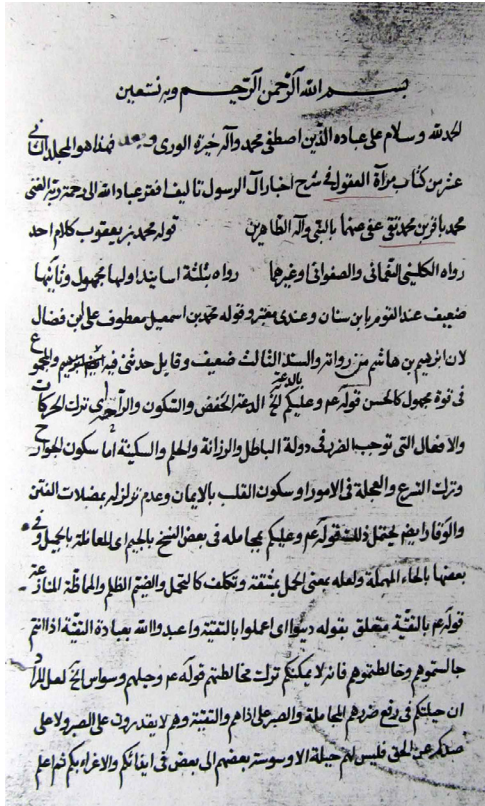 بسم الله الرحمن الرحيم وبه نستعين
الحمد لله وسلام على عباده الذين اصطفى محمد وآله خيرة الورى وبعد فهذا هو المجلد الثاني
عشر من كتاب مرآة العقول في شرح اخبار آل الرسول تاليف افقر عباد الله الى رحمة ربه الغنى
محمد باقر بن محمد تقى عفى عنهما بالنبي وآله الطاهرين قوله محمد بن يعقوب كلام احد
رواة الكليني النعماني والصفواني وغيرهما رواه بثلثة اسانيد اولها مجهول وثانيها
ضعيف عند القوم بابن سنان وعندي معتبر وقوله محمد بن اسمعيل معطوف على ابن فضال
لان ابرهيم بن هاشم من رواته والسند الثالث ضعيف وقايل حدثني فيه ابرهيم والمجموع
في قوة مجهول كالحسن قوله عم وعليكم بالدعة الخ الدعة الخفض والسكون والراحة اى ترك الحركات
والافعال التى توجب الضرر في دولة الباطل والرزانة والحلم والسكينة اما سكون الجوارح
وترك التسرع والعجلة في الامور او سكون القلب بالايمان وعدم تزلزله بمضلات الفتن
والوقار ايضا يحتمل ذلك قوله عم وعليكم بمجاملة في بعض النسخ بالجيم اى المعاملة بالجميل وفي
بعضها بالحاء المهملة ولعله بمعنى الحمل بمشقة وتكلف كالتحمل والضيم الظلم والمماظة المنازعة
قوله عم بالتقية متعلق بقوله دينوا اى اعملوا بالتقية واعبدوا الله بعبادة التقية اذا انتم
جالستموهم وخالطتموهم فانه لا يمكنكم ترك مخالطتهم قوله عم وحيلهم وسواس الخ لعل المراد
ان حيلتكم في دفع ضررهم المجاملة والصبر على اذاهم والتقية وهم لا يقدرون على الصبر ولا على
صدكم عن الحق فليس لهم حيلة الا وسوسة بعضهم الى بعض في ايذائكم والاغراء بكم ثم اعلم